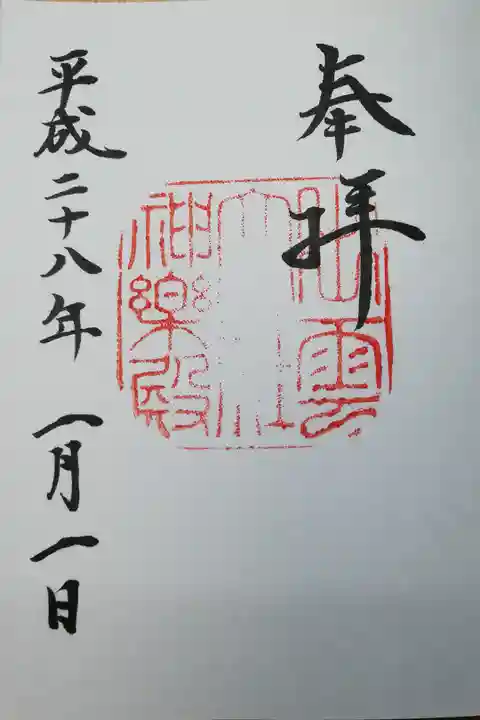 奉拝
出雲
大社
神楽殿
平成二十八年 一月一日